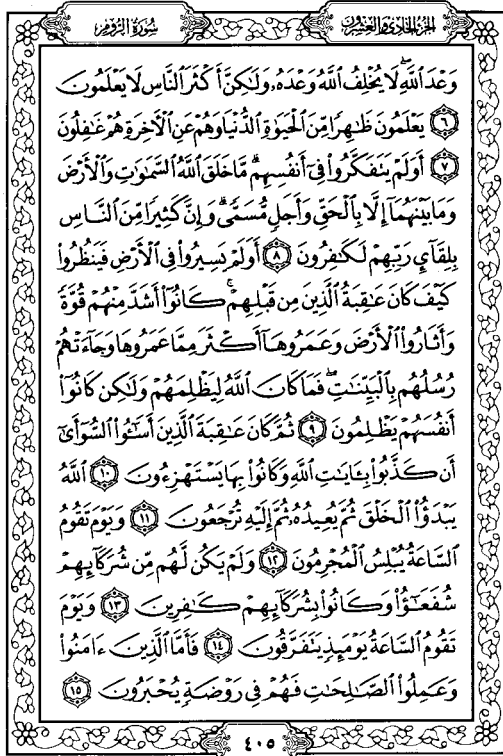 الجزء الحادي والعشرون
سورة الروم
وَعْدَ ٱللَّهِۖ لَا يُخْلِفُ ٱللَّهُ وَعْدَهُۥ وَلَٰكِنَّ أَكْثَرَ ٱلنَّاسِ لَا يَعْلَمُونَ
٦ يَعْلَمُونَ ظَٰهِرًا مِّنَ ٱلْحَيَوٰةِ ٱلدُّنْيَا وَهُمْ عَنِ ٱلْءَاخِرَةِ هُمْ غَٰفِلُونَ
٧ أَوَلَمْ يَتَفَكَّرُوا۟ فِىٓ أَنفُسِهِمۗ مَّا خَلَقَ ٱللَّهُ ٱلسَّمَٰوَٰتِ وَٱلْأَرْضَ
وَمَا بَيْنَهُمَآ إِلَّا بِٱلْحَقِّ وَأَجَلٍ مُّسَمًّىۗ وَإِنَّ كَثِيرًا مِّنَ ٱلنَّاسِ
بِلِقَآئِ رَبِّهِمْ لَكَٰفِرُونَ ٨ أَوَلَمْ يَسِيرُوا۟ فِى ٱلْأَرْضِ فَيَنظُرُوا۟
كَيْفَ كَانَ عَٰقِبَةُ ٱلَّذِينَ مِن قَبْلِهِمْۚ كَانُوٓا۟ أَشَدَّ مِنْهُمْ قُوَّةً
وَأَثَارُوا۟ ٱلْأَرْضَ وَعَمَرُوهَآ أَكْثَرَ مِمَّا عَمَرُوهَا وَجَآءَتْهُمْ
رُسُلُهُم بِٱلْبَيِّنَٰتِۖ فَمَا كَانَ ٱللَّهُ لِيَظْلِمَهُمْ وَلَٰكِن كَانُوٓا۟
أَنفُسَهُمْ يَظْلِمُونَ ٩ ثُمَّ كَانَ عَٰقِبَةَ ٱلَّذِينَ أَسَٰٓـُٔوا۟ ٱلسُّوٓأَىٰٓ
أَن كَذَّبُوا۟ بِـَٔايَٰتِ ٱللَّهِ وَكَانُوا۟ بِهَا يَسْتَهْزِءُونَ ١٠ ٱللَّهُ
يَبْدَؤُا۟ ٱلْخَلْقَ ثُمَّ يُعِيدُهُۥ ثُمَّ إِلَيْهِ تُرْجَعُونَ ١١ وَيَوْمَ تَقُومُ
ٱلسَّاعَةُ يُبْلِسُ ٱلْمُجْرِمُونَ ١٢ وَلَمْ يَكُن لَّهُم مِّن شُرَكَآئِهِمْ
شُفَعَٰٓؤُا۟ وَكَانُوا۟ بِشُرَكَآئِهِمْ كَٰفِرِينَ ١٣ وَيَوْمَ
تَقُومُ ٱلسَّاعَةُ يَوْمَئِذٍ يَتَفَرَّقُونَ ١٤ فَأَمَّا ٱلَّذِينَ ءَامَنُوا۟
وَعَمِلُوا۟ ٱلصَّٰلِحَٰتِ فَهُمْ فِى رَوْضَةٍ يُحْبَرُونَ ١٥
٤٠٥